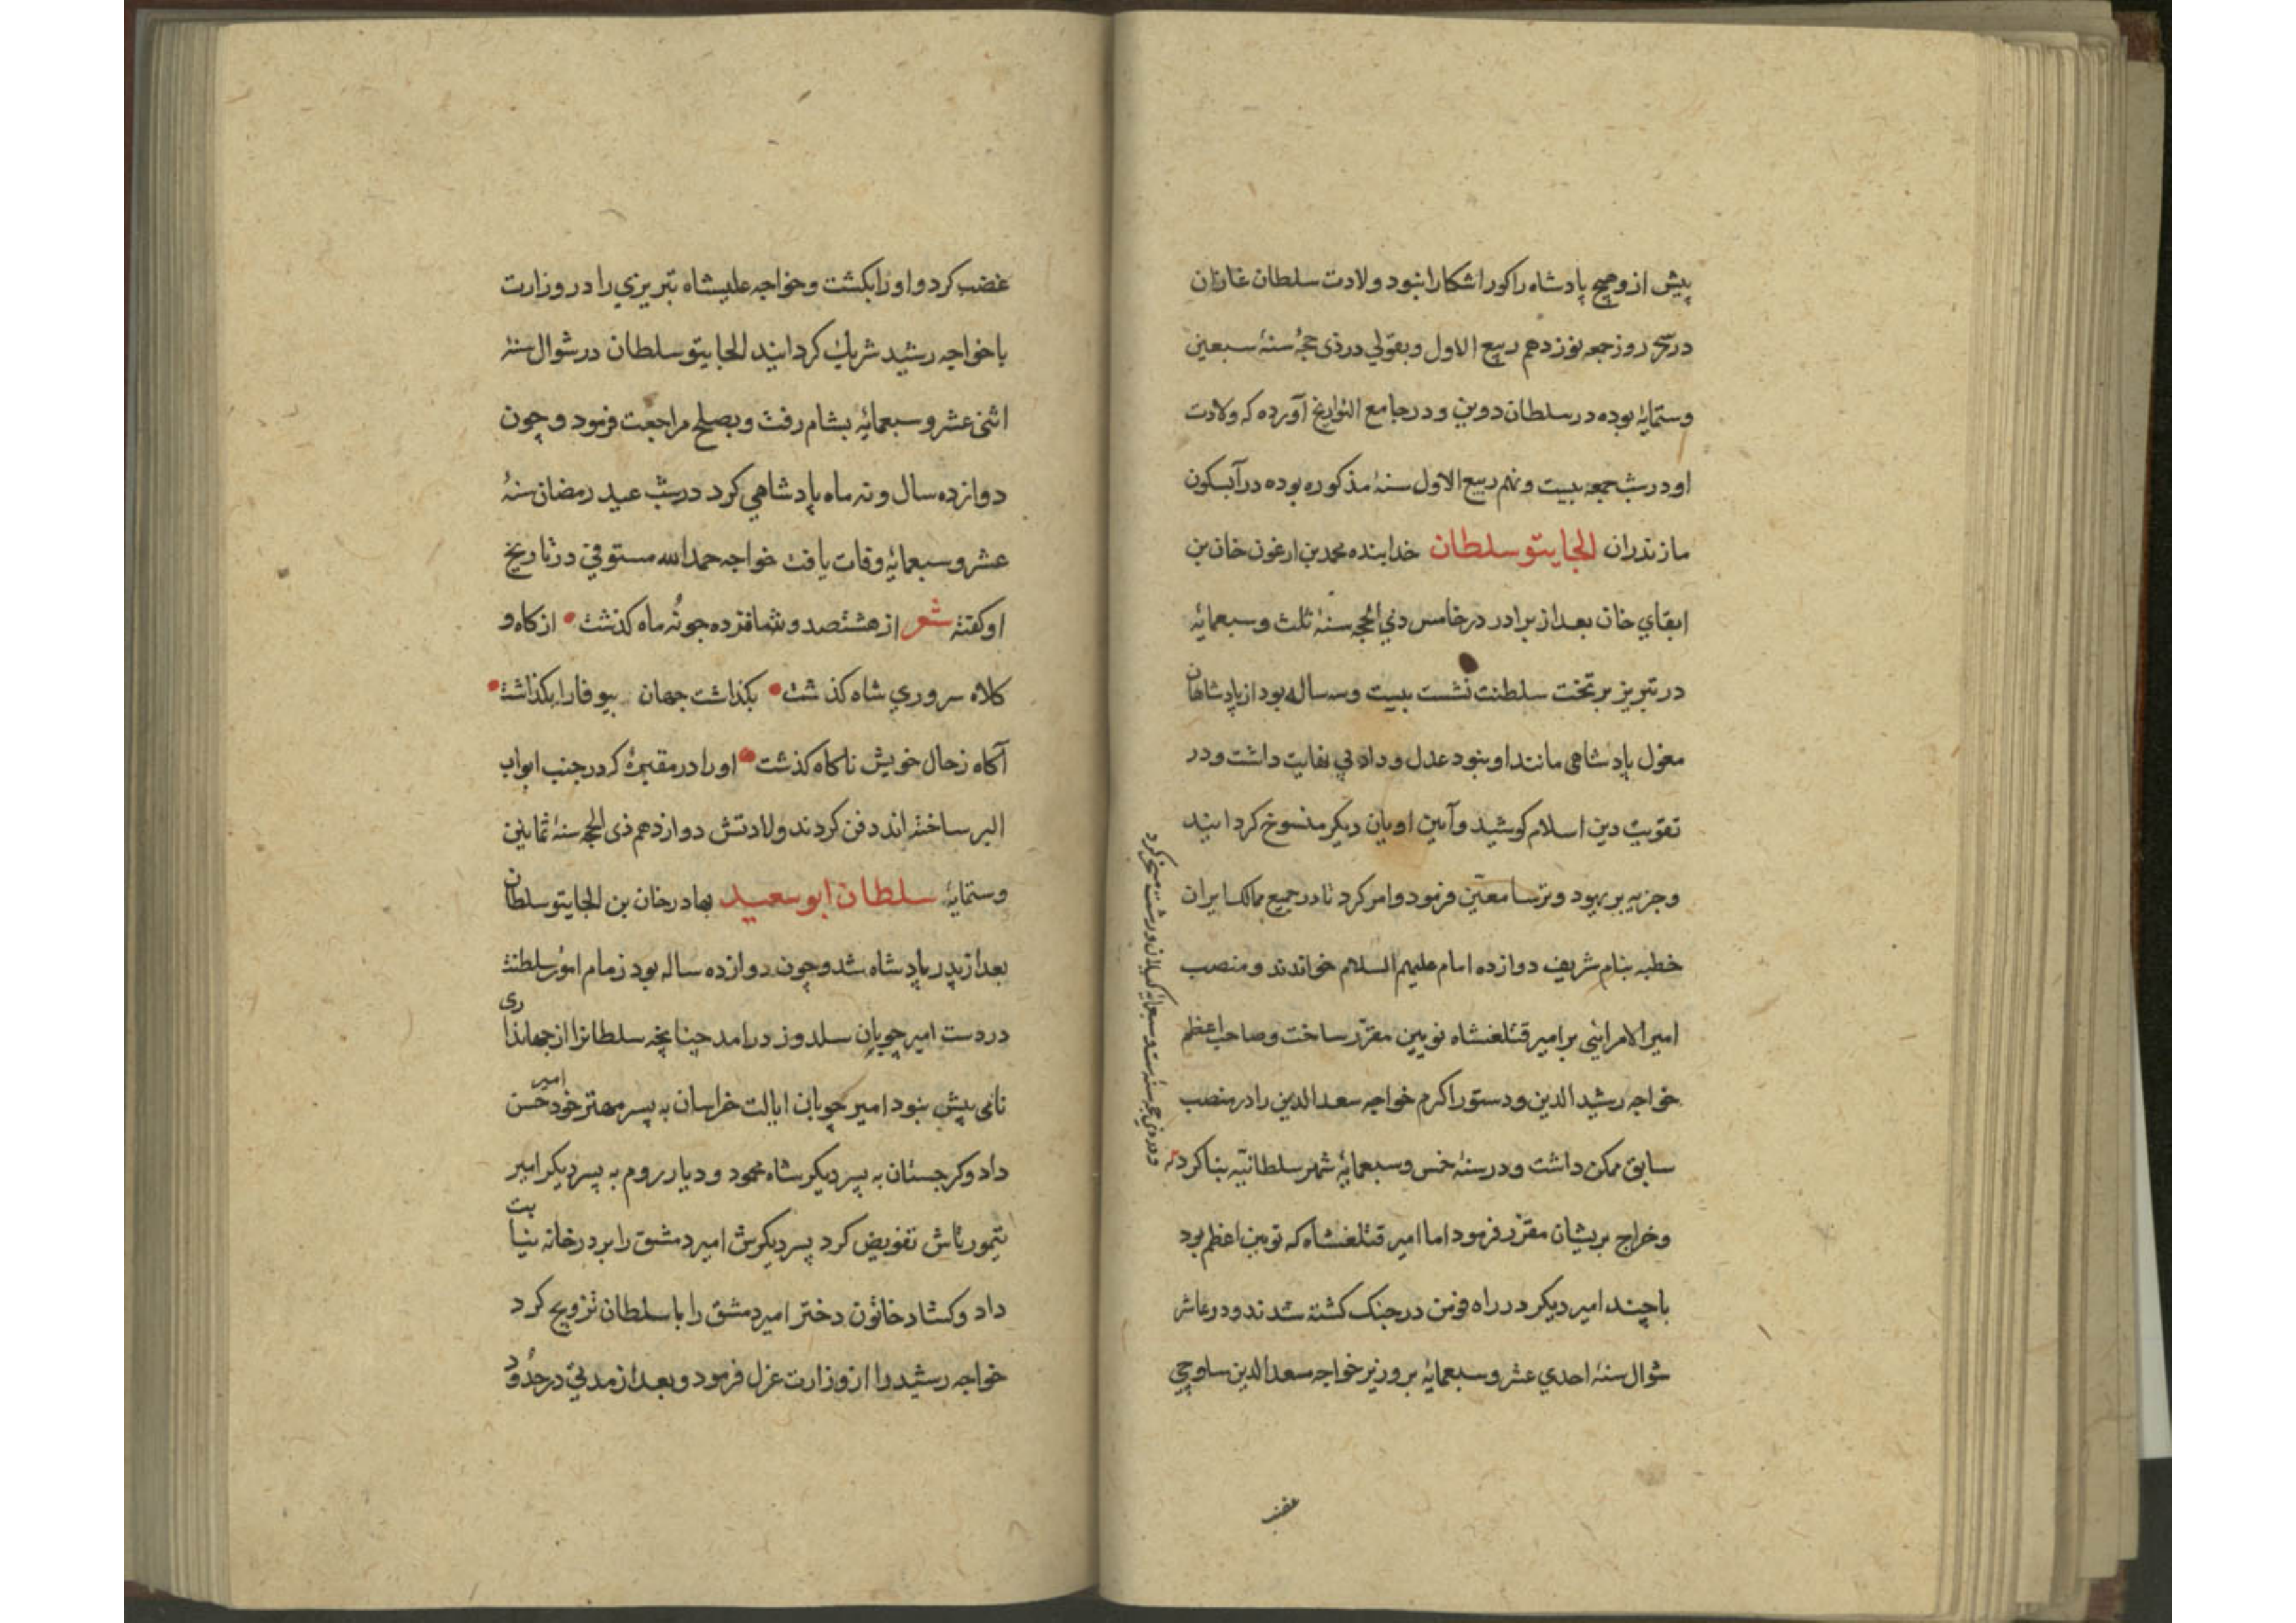 پیش از و هیچ پادشاه راکور اشکارا نبود ولادت سلطان غازان
در سحر روز جمعه نوزدهم ربیع الاول و بقولی در ذی حجهٔ سنهٔ سبعین
و ستمایٔه بوده در سلطان دوین و در جامع التواریخ آورده که ولادت
او در شب جمعه بیست و نهم ربیع الاول سنهٔ مذکوره بوده در آبسکون
مازندران الجایتو سلطان خدابنده محمد بن ارغون خان بن
ابقای خان بعد از برادر در خامس ذی الحجه سنهٔ ثلث و سبعمایٔه
در تبریز بر تخت سلطنت نشست بیست و سه ساله بود از پادشاهان
مغول پادشاهی مانند او نبود عدل و داد بی نهایت داشت و در
تقویت دین اسلام کوشید و آیین اویان دیکر منسوخ کردانید
و جزیه بر یهود و ترسا معیّن فرمود و امر کرد تا در جمیع ممالک ایران
خطبه بنام شریف دوازده امام علیهم السلام خواندند و منصب
امیر الامرایٔی بر امیر قتلغشاه نویین مقرّر ساخت و صاحب اعظم
خواجه رشید الدین و دستور اکرم خواجه سعد الدین را در منصب
سابق ممکن داشت و در سنهٔ خمس و سبعمایٔه شهر سلطانیّه بنا کرد
و در ذی حجه سنهٔ ست و سبعمایٔه کیلان و رشت مسخر کرد
و خراج بریشان مقرّر فرمود اما امیر قتلغشاه که نویین اعظم بود
با چند امیر دیکر در راه فومن در جنک کشته شدند و در عاشر
شوال سنهٔ احدی عشر و سبعمایٔه بر وزیر خواجه سعد الدین ساوجی
غضب
غضب کرد و او را بکشت و خواجه علیشاه تبریزی را در وزارت
با خواجه رشید شریک کردانید الجایتو سلطان در شوال سنهٔ
اثنی عشر و سبعمایٔه بشام رفت و بصلح مراجعت فرمود و چون
دوازده سال و نه ماه پادشاهی کرد در شب عید رمضان سنهٔ
عشر و سبعمایٔه وفات یافت خواجه حمدالله مستوفی در تاریخ
او کفته شعر از هشتصد و شانزده چو نُه ماه کذشت از کاه و
کلاه سروری شاه کذشت بکذاشت جهان بیوفا را بکذاشت
آکاه ز حال خویش ناکاه کذشت او را در مقبرهٔ که در جنب ابواب
البر ساخته اند دفن کردند ولادتش دوازدهم ذی الحجه سنهٔ ثمانین
و ستمایٔه سلطان ابو سعید بهادر خان بن الجایتو سلطان
بعد از پدر پادشاه شد و چون دوازده ساله بود زمام امور سلطنت
در دست امیر چوپان سلدوز درامد چنانچه سلطانرا از جهانداری
نامی بیش نبود امیر چوپان ایالت خراسان به پسر مهتر خود امیر حسن
داد و کرجستان به پسر دیکر شاه محمود و دیار روم به پسر دیکر امیر
تیمورتاش تفویض کرد پسر دیکرش امیر دمشق را بر در خانه نیابت
داد و کشاد خاتون دختر امیر دمشق را با سلطان تزویج کرد
خواجه رشید را از وزارت عزل فرمود و بعد از مدتی در حدود